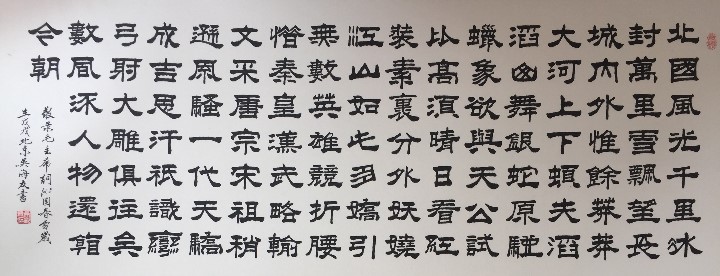 北國風光千里冰
封萬里雪飄望長
城內外惟餘莽莽
大河上下頓失滔
滔山舞銀蛇原馳
蠟象欲與天公試
比高須晴日看紅
裝素裹分外妖嬈
江山如此多嬌引
無數英雄競折腰
惜秦皇漢武略輸
文采唐宗宋祖稍
遜風騷一代天驕
成吉思汗祇識彎
弓射大雕俱往矣
數風流人物還看
今朝
敬录毛主席詞沁園春雪歲
北京吴海友書